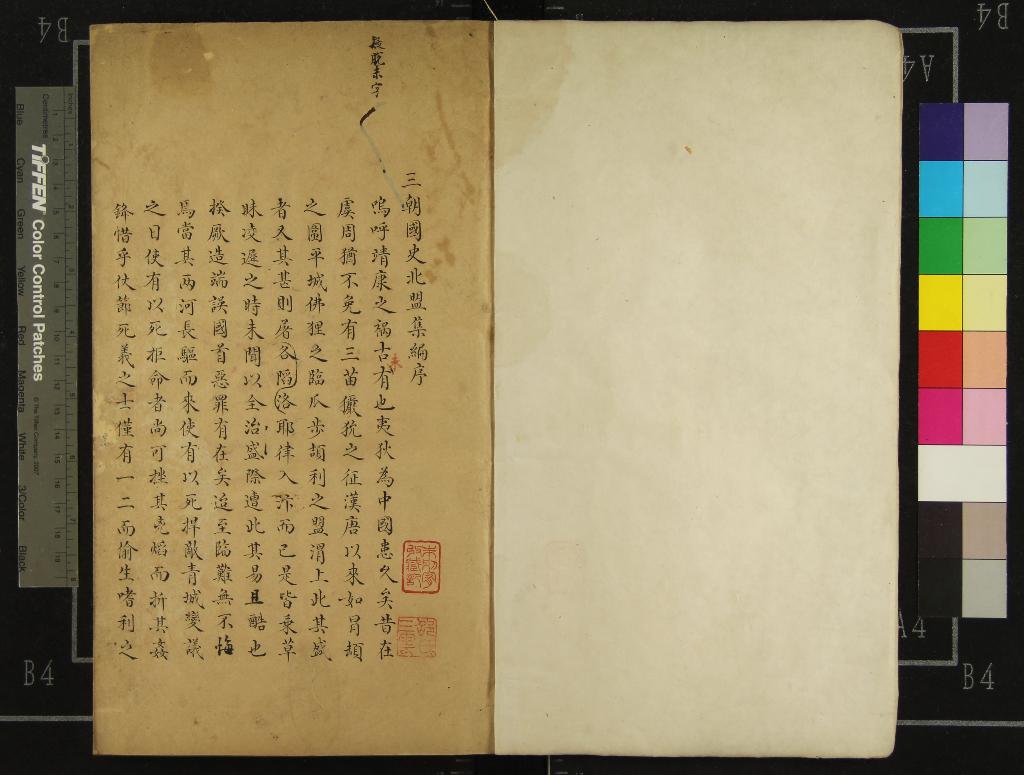 疑脫未字
三朝國史北盟集編序
嗚呼靖康之禍古未有也夷狄為中國患久矣昔在
虞周猶不免有三苗玁狁之征漢唐以來如冒頓
之圍平城佛狸之臨瓜步頡利之盟渭上此其盛
者又其甚則屠各陷洛耶律入汴而已是皆乘草
昧凌遲之時未聞以全治盛際遭此其易且酷也
揆厥造端誤國首惡罪有在矣迨至臨難無不悔
焉當其兩河長驅而來使有以死捍敵青城變議
之日使有以死拒命者尚可挫其兇焰而折其姦
鋒惜乎仗節死義之士僅有一二而偷生嗜利之
B4
B4
A4
A4
B4
B4
TIFFEN Color Control Patches
© The Tiffen Company, 2007
Inches
Centimetres
Blue
Cyan
Green
Yellow
Red
Magenta
White
3/Color
Black